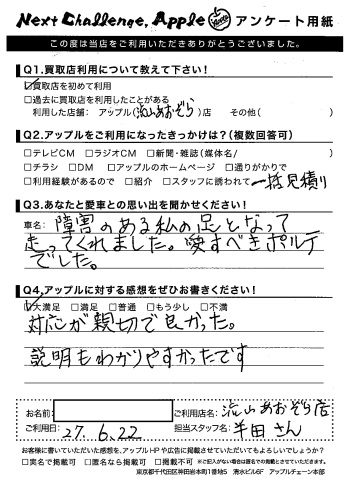 Next Challenge, Apple アンケート用紙
この度は当店をご利用いただきありがとうございました。
Q1.買取店利用について教えて下さい!
☑買取店を初めて利用
□過去に買取店を利用したことがある
利用した店舗: アップル(流山あおぞら)店 その他( )
Q2.アップルをご利用になったきっかけは?(複数回答可)
□テレビCM □ラジオCM □新聞・雑誌(媒体名/ )
□チラシ □DM □アップルのホームページ □通りがかりで
□利用経験があるので □紹介 □スタッフに誘われて 一括見積り
Q3.あなたと愛車との思い出を聞かせください!
車名: 障害のある私の足となって
走ってくれました。愛すべきポルテ
でした。
Q4.アップルに対する感想をぜひお書きください!
☑大満足 □満足 □普通 □もう少し □不満
対応が親切で良かった。
説明もわかりやすかったです
お名前: ご利用店名: 流山あおぞら店
ご利用日: 27.6.22 担当スタッフ名: 半田さん
お客様に書いていただいた感想を、アップルHPや広告に掲載させていただいてもよろしいでしょうか?
□実名で掲載可 □匿名なら掲載可 □掲載不可 ※ご記入がない場合は匿名での掲載とさせていただきます。
東京都千代田区神田岩本町1番地5 清水ビル6F アップルチェーン本部